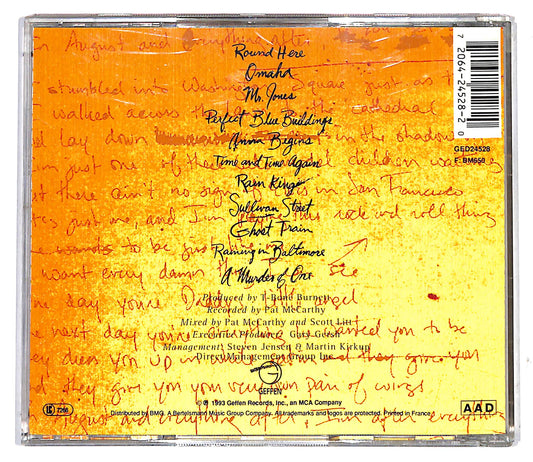 In August and everything after
stumbled into Washington Square just as
I walked across the cathedral
lay down in the shadow
in just one of the children
there ain't no sign of in San Francisco
just me, and I'm this rock and roll thing
to be just
want every damn thing I see
one day you're Daddy
next day you're wanted you to be
dress you up in they give you
they give you your very own pair of wings
August and everything after, I'm after everything
Round Here
Omaha
Mr. Jones
Perfect Blue Buildings
Anna Begins
Time and Time Again
Rain King
Sullivan Street
Ghost Train
Raining in Baltimore
A Murder of One
Produced by T-Bone Burnett
Recorded by Pat McCarthy
Mixed by Pat McCarthy and Scott Litt
Executive Producer Gary Gersh
Management: Steven Jensen & Martin Kirkup
Direct Management Group Inc.
G
GEFFEN
℗© 1993 Geffen Records, Inc., an MCA Company
Distributed by BMG. A Bertelsmann Music Group Company. All trademarks and logos are protected. Printed in France
7 20642-45282-0
GED24528
F: BM650
AAD